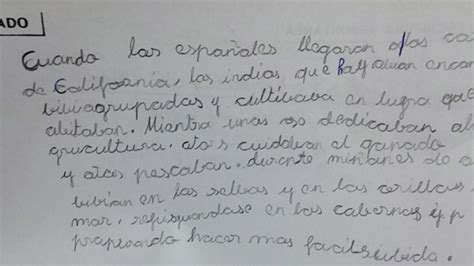 ADO
Cuando las españoles llegaron a las co
de California, los indios que hallaron encon
bibiagrupadas y cultibaba en lugra que
abitaban. Mientra unos se dedicaban al
gricultura. otors cuidaban el ganado
y otos pascaban. durante miñanes de a
bibian en las selbas y en las orillas
mar. refiguandase en las cabernas y p
prapesando hacer mas facil subida.